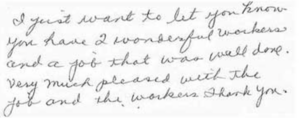 I just want to let you know
you have 2 wonderful workers
and a job that was well done.
Very much pleased with the
job and the workers Thank you.